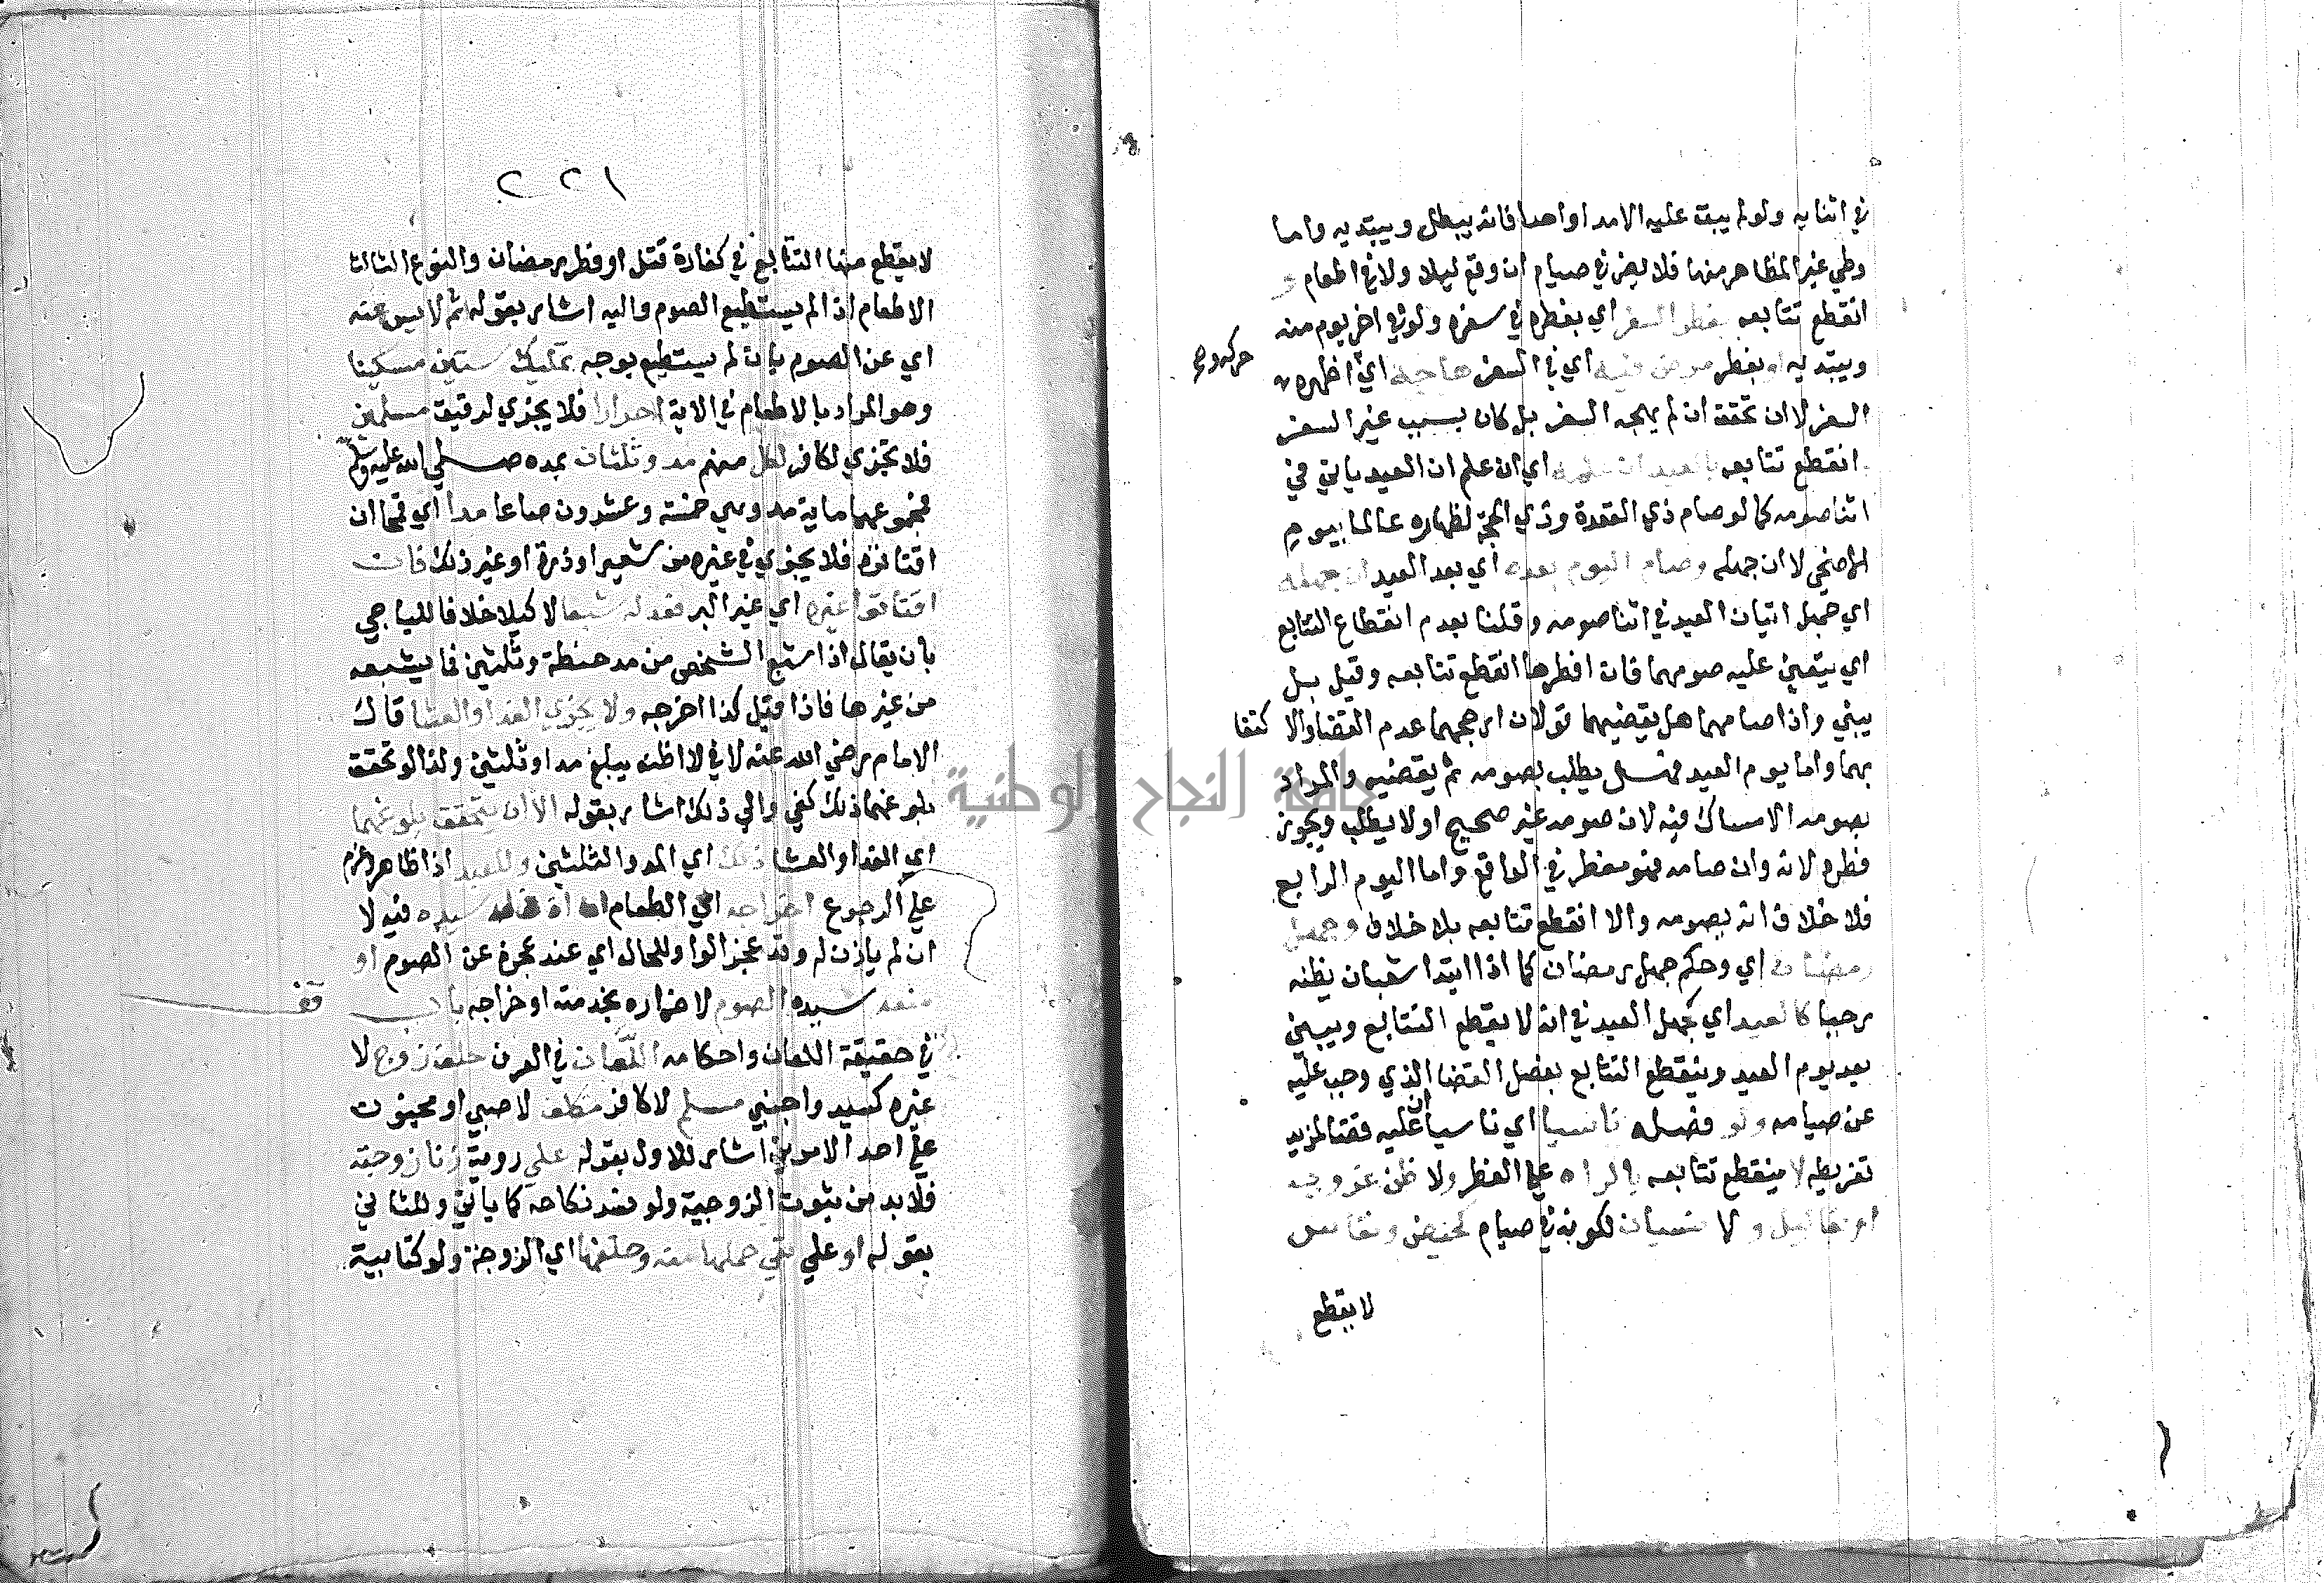 في اثنايه ولو لم يبق عليه الا مدا واحدا فانه يبطل ويبتديه واما
وطي غير المظاهر منها فلا يضر في صيام ان وقع ليلا ولا في اطعام و
انقطع تتابعه بفطر السفر اي بفطره في سفره ولو في اخر يوم منه
ويبتديه او بفطر مرض فيه اي في السفر هاجه اي اظهره
حركه وهو
السفر لا ان تحقق ان لم يهجه السفر بل كان بسبب غير السفر
انقطع تتابعه بالعيد ان علمه اي ان علم ان العيد ياتي في
اثنا صومه كما لو صام ذي القعدة وذي الحجة لظهاره عالما بيوم
الاضحى لا ان جهله وصام اليوم بعده اي بعد العيد ان جهله
اي جهل اتيان العيد في اثنا صومه وقلنا بعدم انقطاع التتابع
اي يتعين عليه صومهما فان افطرها انقطع تتابعه وقيل بل
يبني واذا صامهما هل يقضيهما قولان ارجحهما عدم القضا والاكتفا
بهما واما يوم العيد فهل يطلب بصومه ثم يقضيه والمراد
بصومه الامساك فيه لان صومه غير صحيح او لا يطلب ويجوز
فطره لانه وان صامه فهو مفطر في الواقع واما اليوم الرابع
فلا خلاف انه يصومه والا انقطع تتابعه بلا خلاف وجهل
رمضان اي وحكم جهل رمضان كما اذا ابتدا شعبان يظنه
رجبا كالعيد اي كجهل العيد في انه لا يقطع التتابع ويبني
بعد يوم العيد وينقطع التتابع بفصل القضا الذي وجب عليه
عن صيامه ولو فصله ناسيا اي ناسيا ان عليه قضا لمزيد
تفريطه لا ينقطع تتابعه باكراه على الفطر ولا ظن غروب
او بقا ليل ولا نسيان لكونه في صيام كحيض ونفاس
لا يقطع
٢٢١
لا يقطع منها التتابع في كفارة قتل او فطر رمضان والنوع الثالث
الاطعام اذا لم يستطيع الصوم واليه اشار بقوله ثم لايس عنه
اي عن الصوم بان لم يستطع بوجه تمليك ستين مسكينا
وهو المراد بالاطعام في الاية احرارا فلا يجزي لرقيق مسلمين
فلا تجزي لكافر لكل منهم مد وثلثان بمده صلى الله عليه وسلم
فمجموعها ماية مد وهي خمسة وعشرون صاعا مدا اي قمحا ان
اقتاتوه فلا يجزي في غيره من شعير او ذرة او غير ذلك فان
اقتاتوا غيره اي غير البر فعدله شبعا لا كيلا خلافا للباجي
بان يقال اذا شبع الشخص من مد حنطة وثلثين فما يشبعه
من غيرها فاذا قيل كذا اخرجه ولا يجزي الغدا والعشا قال
الامام رضي الله عنه لاني لا اظنه يبلغ مدا وثلثين ولذا لو تحقق
بلوغهما ذلك كفى والي ذلك اشار بقوله الا ان يتحقق بلوغهما
اي الغدا والعشا ذلك اي المد والثلثين وللعبد اذا ظاهر وعزم
على الرجوع اخراجه اي الطعام ان اذن له سيده فيه لا
ان لم ياذن له وقد عجز الواو للحال اي عند عجزه عن الصوم او
منعه سيده الصوم لاضراره بخدمته او خراجه باب
قف
في حقيقة اللعان واحكامه اللعان في العرف حلف زوج لا
غيره كسيد واجنبي مسلم لا كافر مكلف لا صبي او مجنون
على احد الامرين اشار للاول بقوله على روية زنا زوجته
فلا بد من ثبوت الزوجية ولو فسد نكاحه كما ياتي وللثاني
بقوله او على نفي حملها منه وحلفها اي الزوجة ولو كتابية
جامعة النجاح الوطنية